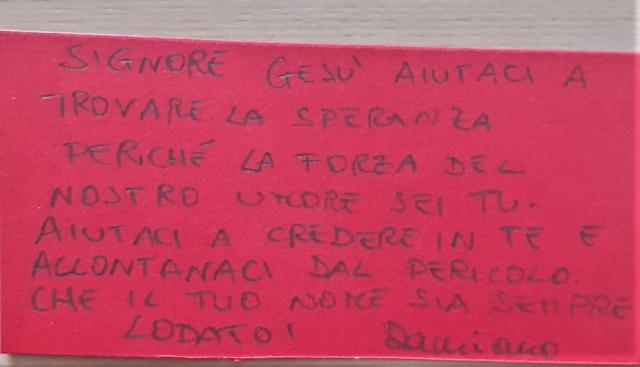 SIGNORE GESU' AIUTACI A
TROVARE LA SPERANZA
PERCHÉ LA FORZA DEL
NOSTRO UMORE SEI TU.
AIUTACI A CREDERE IN TE E
ALLONTANACI DAL PERICOLO.
CHE IL TUO NOME SIA SEMPRE
LODATO! Damiano